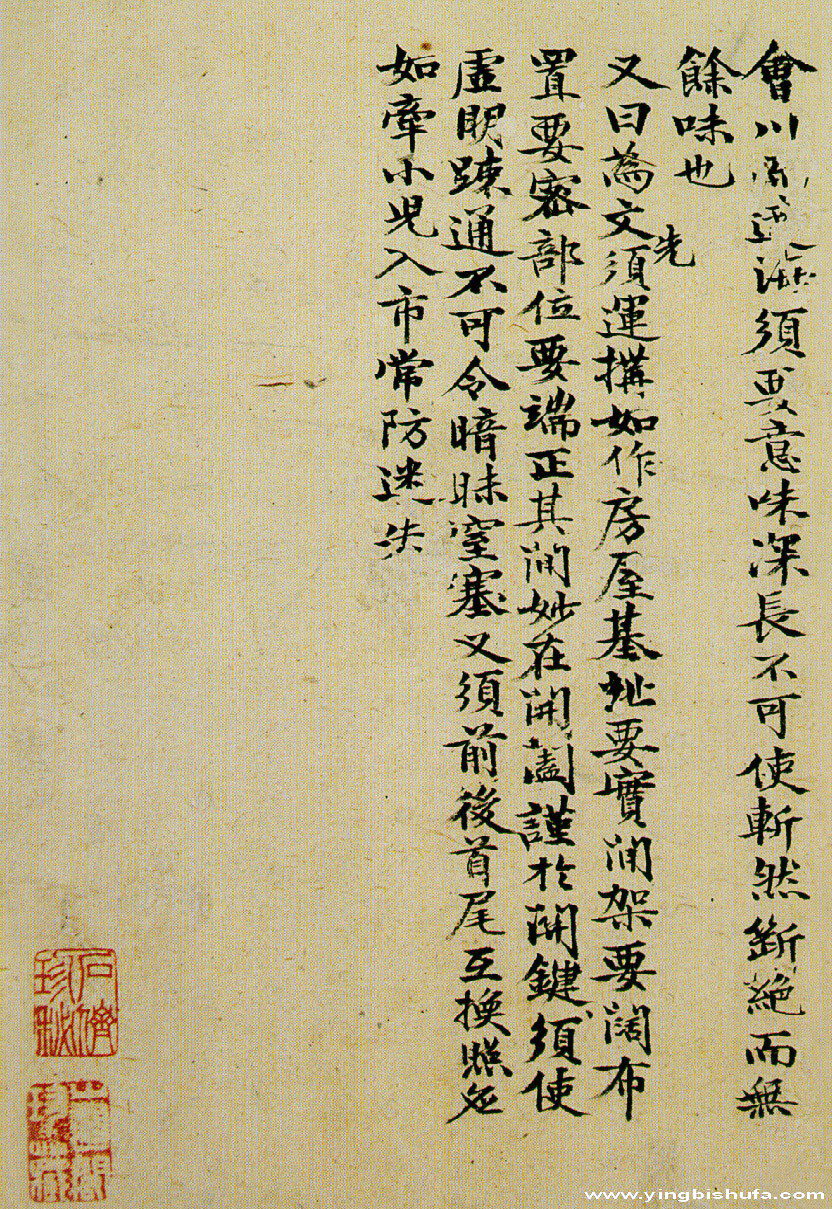 會川須要意味深長不可使斬然斷絕而無
餘味也
又曰為文須先運搆如作房屋基址要實間架要闊布
置要密部位要端正其間妙在開闔謹於關鍵須使
虛明踈通不可令暗昧窒塞又須前後首尾互換照應
如牽小児入市常防迷失
www.yingbishufa.com